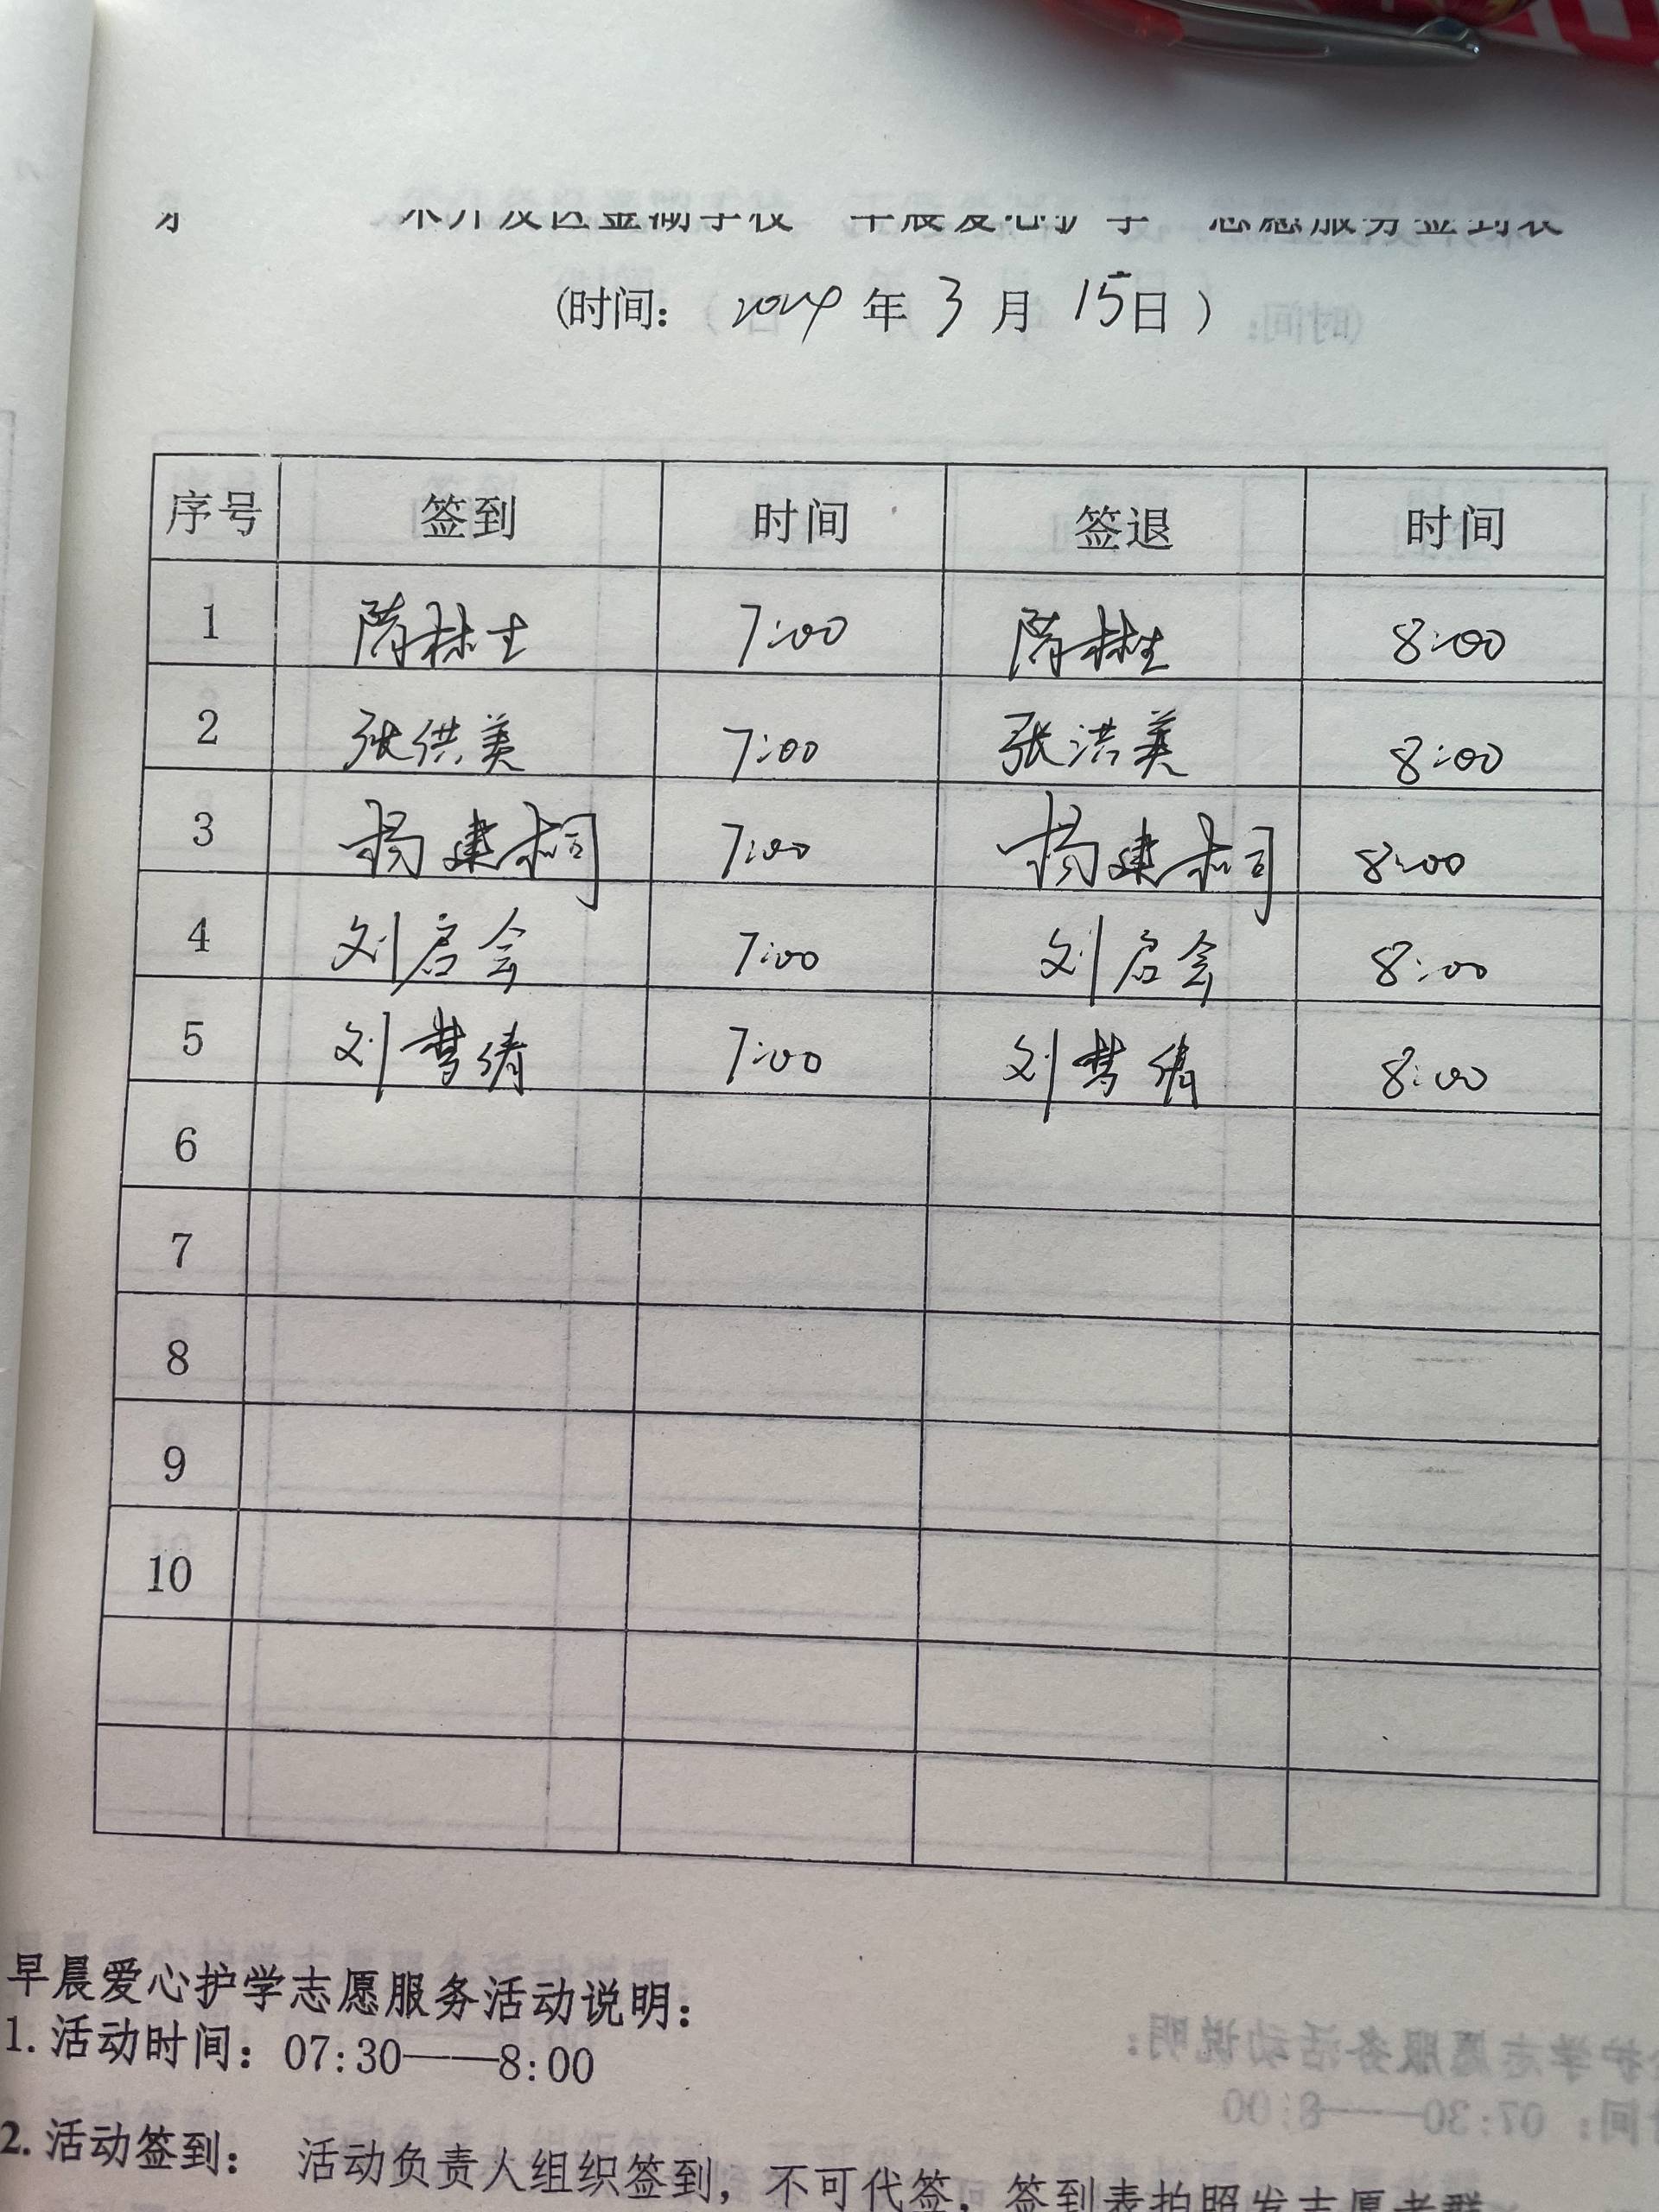 术开发区金湖学校 早晨爱心护学 志愿服务签到表
(时间: 2024 年 3 月 15 日 )
序号 签到 时间 签退 时间
1 隋林士 7:00 隋林生 8:00
2 张洪美 7:00 张洪美 8:00
3 杨建桐 7:00 杨建桐 8:00
4 刘启会 7:00 刘启会 8:00
5 刘梦倩 7:00 刘梦倩 8:00
6
7
8
9
10
早晨爱心护学志愿服务活动说明:
1. 活动时间: 07:30——8:00
2. 活动签到: 活动负责人组织签到, 不可代签, 签到表拍照发志愿者群